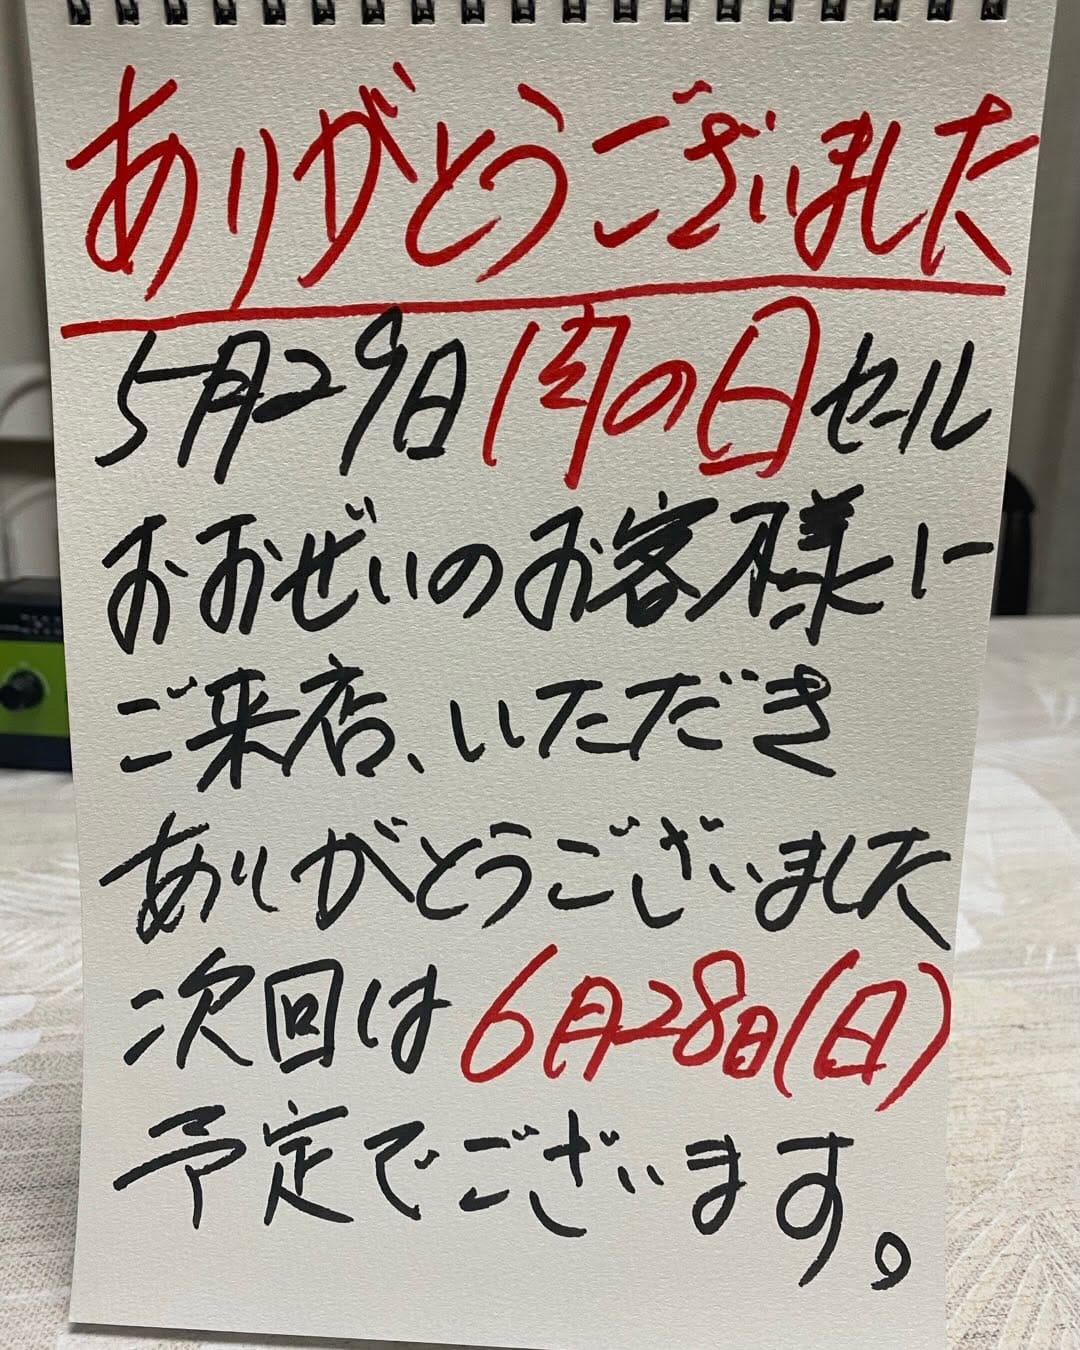 ありがとうございました
5月29日肉の日セール
おおぜいのお客様に
ご来店、いただき
ありがとうございました
次回は6月28日(日)
予定でございます。